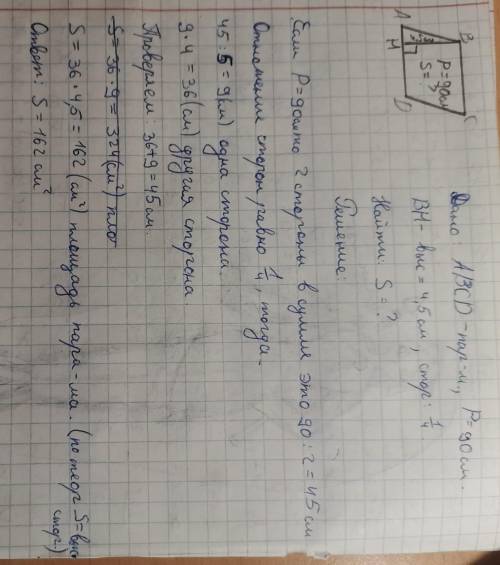 A
B
H
P=90см
S=?
D
C
Дано: ABCD - пар-м, P=90см.
BH - выс = 4,5 см, стор: 1/4
Найти: S = ?
Решение:
Если P=90см то 2 стороны в сумме это 90:2=45см
Отношение сторон равно 1/4, тогда -
45:5=9(см) одна сторона.
9·4=36(см) другая сторона
Проверяем: 36+9=45см.
S=36·9=324(см²) пло
S=36·4,5=162(см²) площадь пара-ма. (по теор S=выс
стор)
Ответ: S=162см²